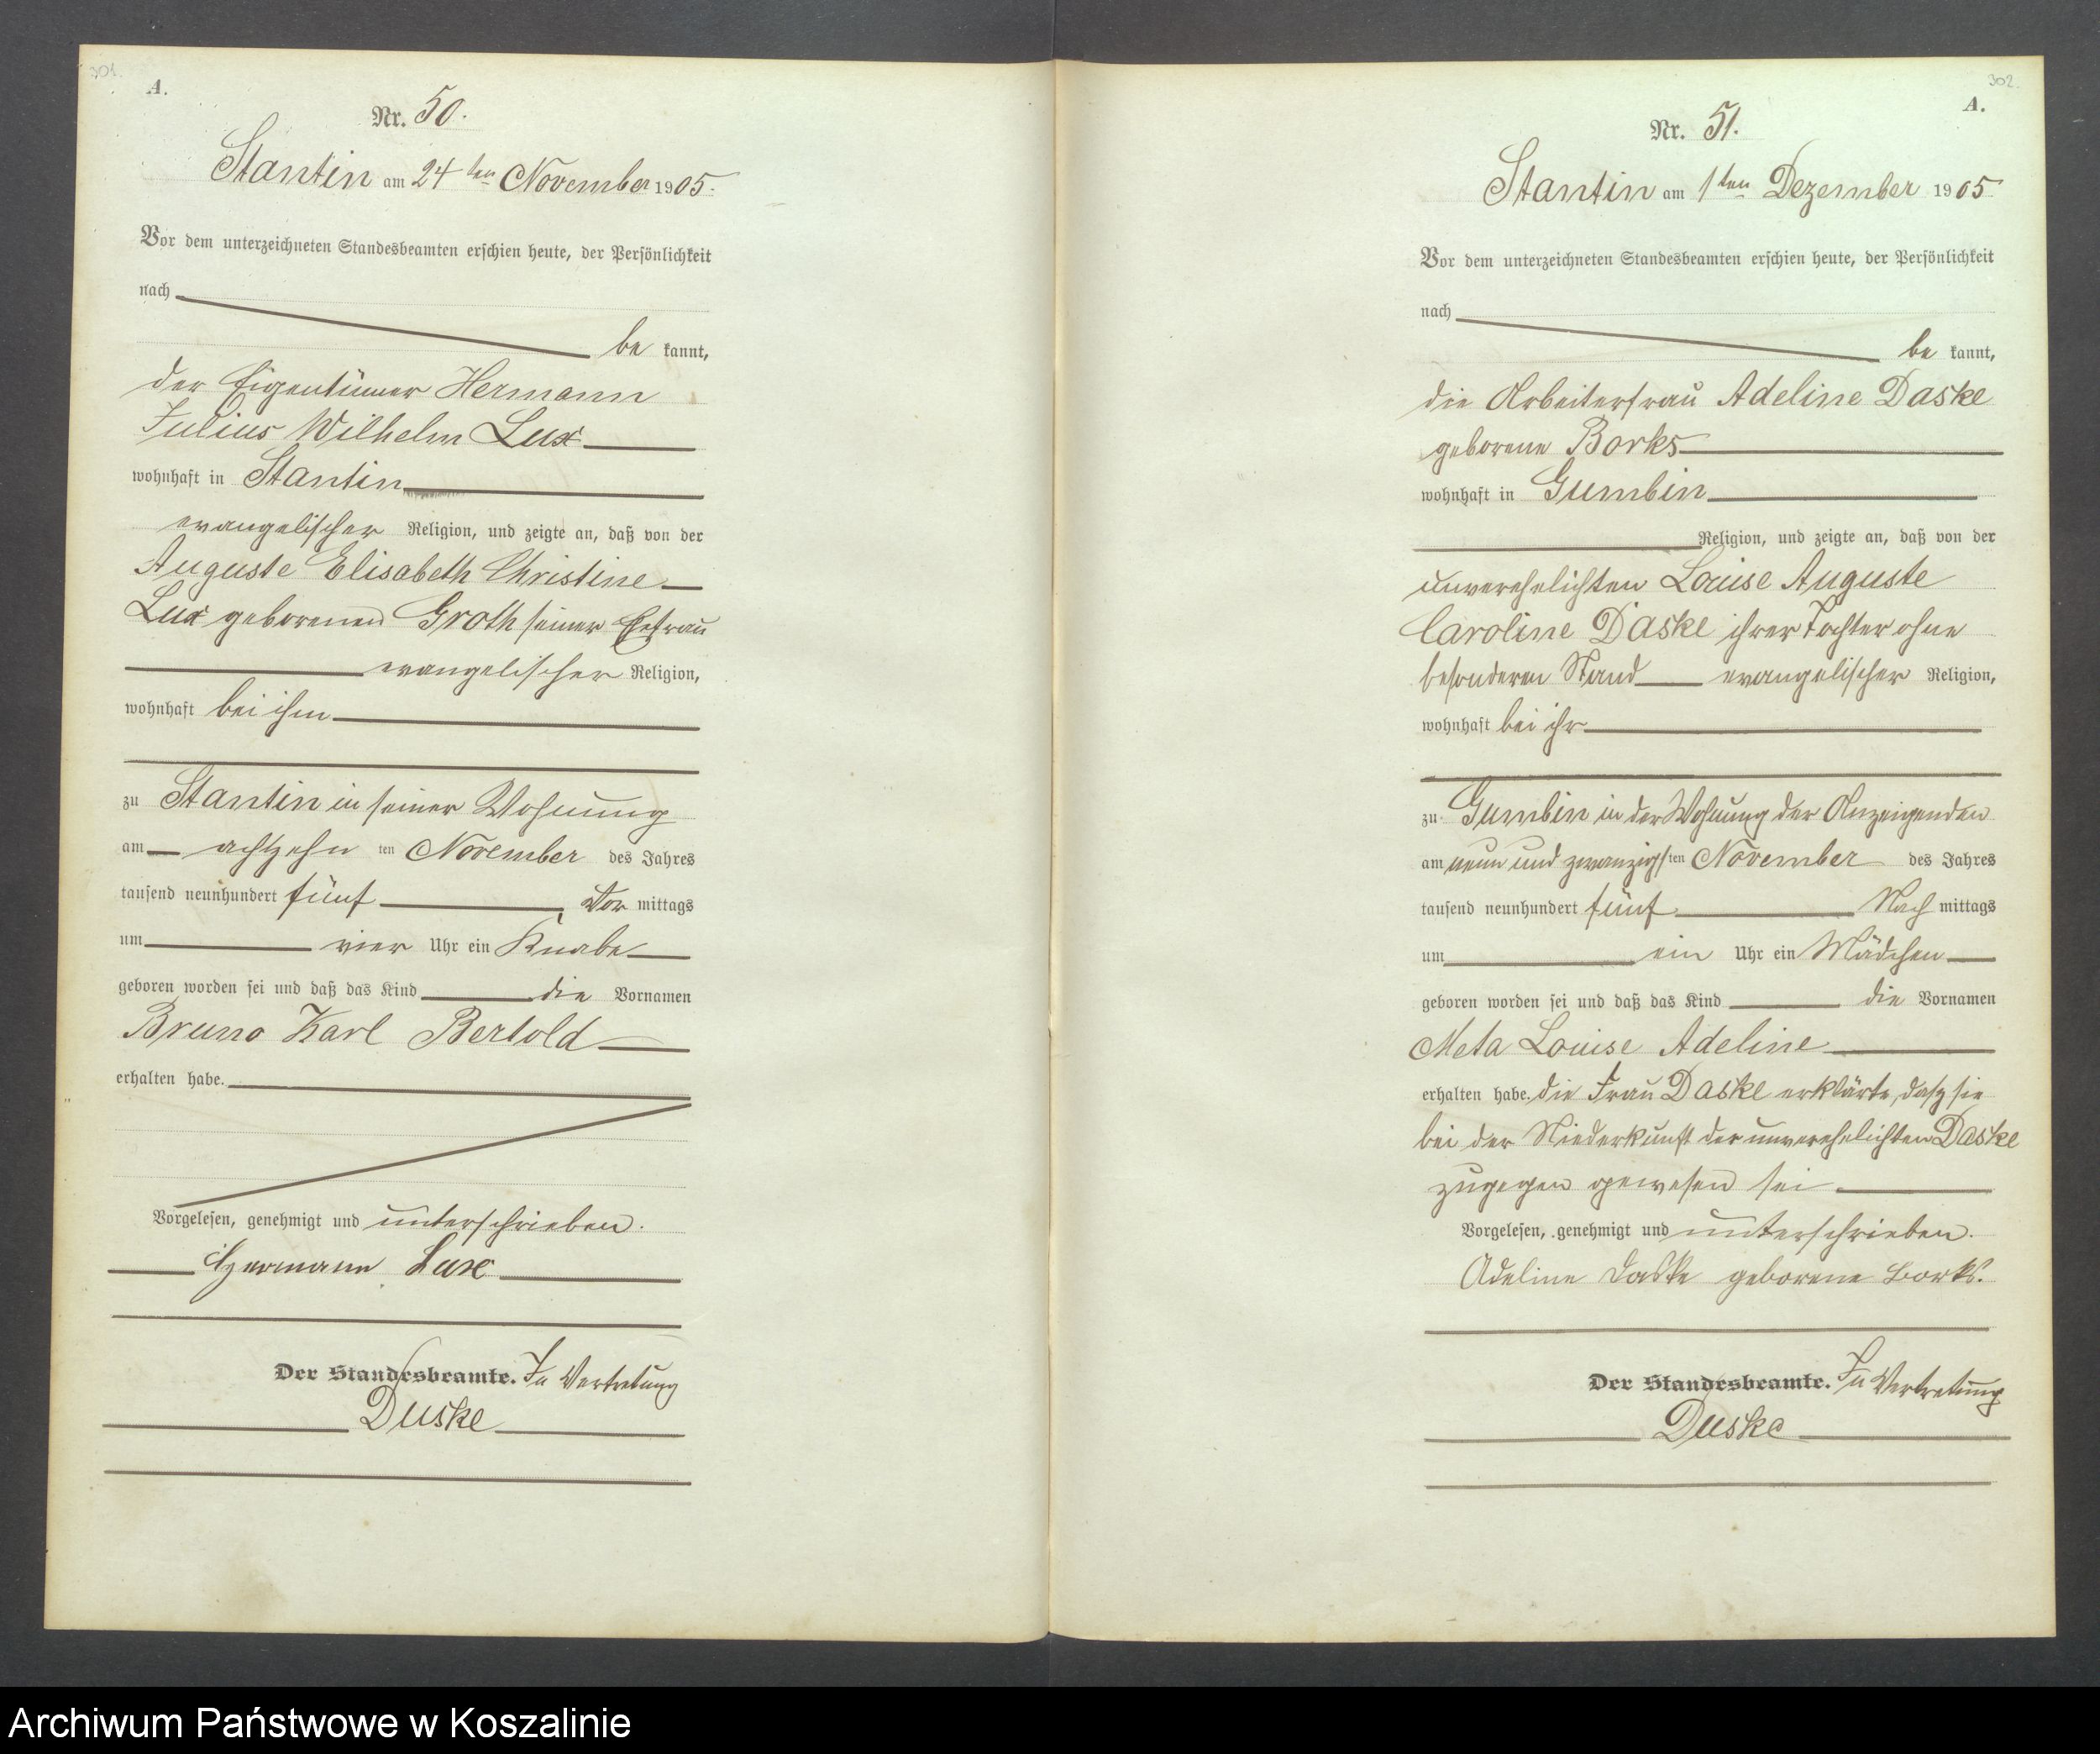 301.
A.
Nr. 50.
Stantin am 24ten November 1905.
Vor dem unterzeichneten Standesbeamten erschien heute, der Persönlichkeit
nach
be kannt,
der Eigentümer Hermann
Julius Wilhelm Lux
wohnhaft in Stantin
evangelischer Religion, und zeigte an, daß von der
Auguste Elisabeth Christine
Lux geborenen Groth seiner Ehefrau
evangelischer Religion,
wohnhaft bei ihm
zu Stantin in seiner Wohnung
am achtzehn ten November des Jahres
tausend neunhundert fünf Vor mittags
um vier Uhr ein Knabe
geboren worden sei und daß das Kind die Vornamen
Bruno Karl Bertold
erhalten habe.
Vorgelesen, genehmigt und unterschrieben.
Hermann Lux
Der Standesbeamte. In Vertretung
Duske
302.
A.
Nr. 51.
Stantin am 1ten Dezember 1905
Vor dem unterzeichneten Standesbeamten erschien heute, der Persönlichkeit
nach
be kannt,
die Arbeiterfrau Adeline Daske
geborene Borks
wohnhaft in Gumbin
Religion, und zeigte an, daß von der
unverehelichten Louise Auguste
Caroline Daske ihrer Tochter ohne
besonderen Stand evangelischer Religion,
wohnhaft bei ihr
zu Gumbin in der Wohnung der Anzeigenden
am neun und zwanzigsten November des Jahres
tausend neunhundert fünf Nach mittags
um ein Uhr ein Mädchen
geboren worden sei und daß das Kind die Vornamen
Meta Louise Adeline
erhalten habe. die Frau Daske erklärte, dasz sie
bei der Niederkunft der unverehelichten Daske
zugegen gewesen sei
Vorgelesen, genehmigt und unterschrieben.
Adeline Daske geborene Borks.
Der Standesbeamte. In Vertretung
Duske
Archiwum Państwowe w Koszalinie